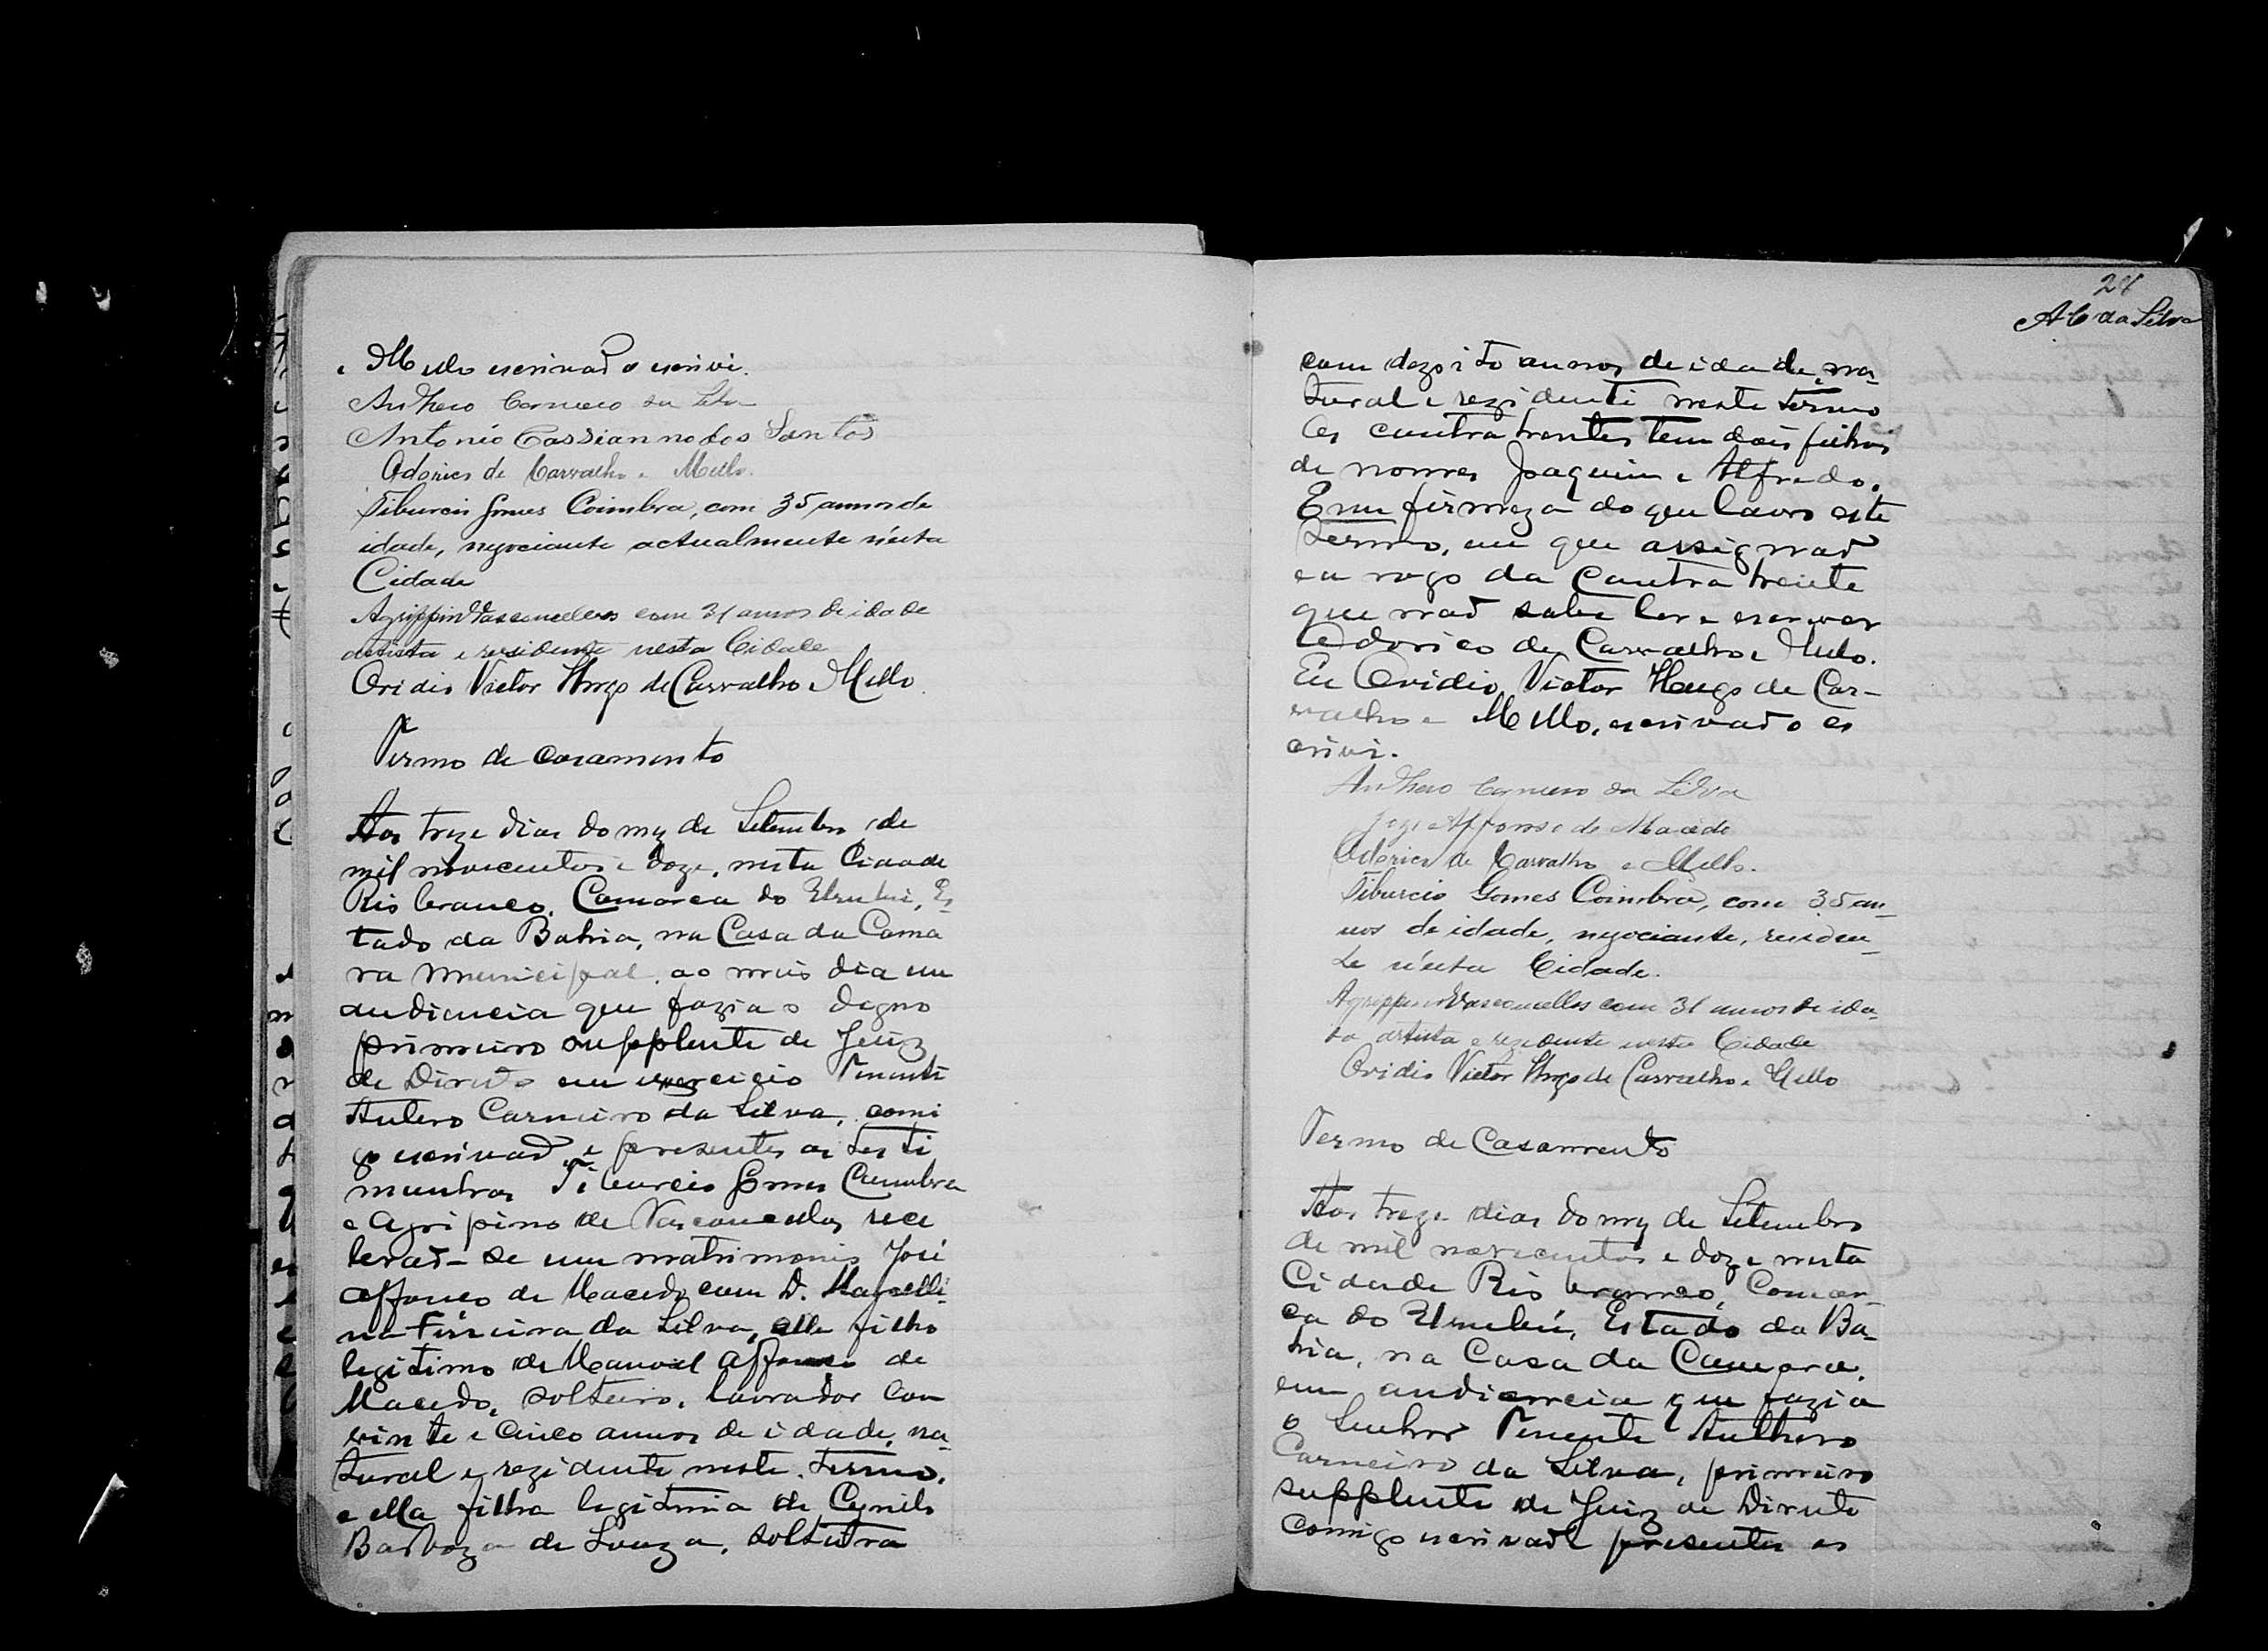 e Mello escrivaõ o escrivi.
Anthero Carneiro da Silva
Antonio Cassianno dos Santos
Odorico de Carvalho e Mello.
Tiburcio Gomes Coimbra, com 35 annos de
idade, negociante actualmente n'esta
Cidade
Agrippino Vasconcellos com 31 annos de idade
artista e residente nesta Cidade
Ovidio Victor Hugo de Carvalho e Mello.
Termo de casamento
Aos treze dias do mez de Setembro de
mil novecentos e doze, nesta Cidade
Rio branco, Comarca do Urubú, Es-
tado da Bahia, na Casa da Cama
ra Municipal, ao meio dia em
audiencia que fazia o digno
primeiro supplente de Juiz
de Direito em exercicio Tenente
Antero Carneiro da Silva, comi
go escrivaõ, e presentes as testi
munhas Tiburcio Gomes Cuimbra
e Agripino de Vasconcellos rece
beraõ-se em matrimonio José
Affonso de Macedo com D. Marcelli-
na Firreira da Silva, elle filho
legitimo de Manoel Affonso de
Macedo, solteiro, lavrador com
vinte e cinco annos de idade, na-
tural e rezidente neste termo,
e ella filha legitima de Cyrilo
Barboza de Souza, solteira
24
A C da Silva
com dezoito annos de idade, na-
tural e rezidente neste termo
Os contrahentes tem dois filhos
de nomes Joaquim e Alfredo.
Em firmeza do que lavro este
termo, em que assignaõ
e a rogo da Contrahente
que naõ sabe ler e escrever
Odorico de Carvalho e Mello.
Eu Ovidio Victor Hugo de Car-
valho e Mello, escrivaõ o es
crivi.
Anthero Carneiro da Silva
Joze Affonso de Macêdo
Odorico de Carvalho e Mello.
Tiburcio Gomes Coimbra, com 35 an-
nos de idade, negociante, residen-
te n'esta Cidade.
Agrippino Vasconcellos com 31 annos de ida-
de artista e rezidente nesta Cidade
Ovidio Victor Hugo de Carvalho e Mello
Termo de Casamento
Aos treze dias do mez de Setembro
de mil novecentos e doze nesta
Cidade Rio branco, Comar-
ca do Urubú, Estado da Ba-
hia, na Casa da Camara,
em audiencia que fazia
o Senhor Tenente Anthero
Carneiro da Silva, primeiro
supplente de Juiz de Direito
comigo escrivaõ presentes as